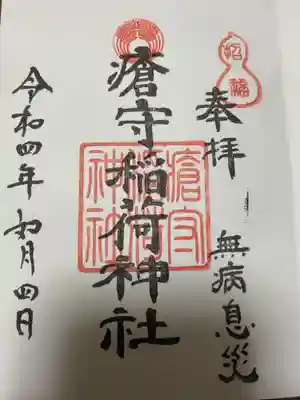 招福
奉拝 無病息災
瘡守稲荷神社
瘡守
稲荷
神社
令和四年 如月四日